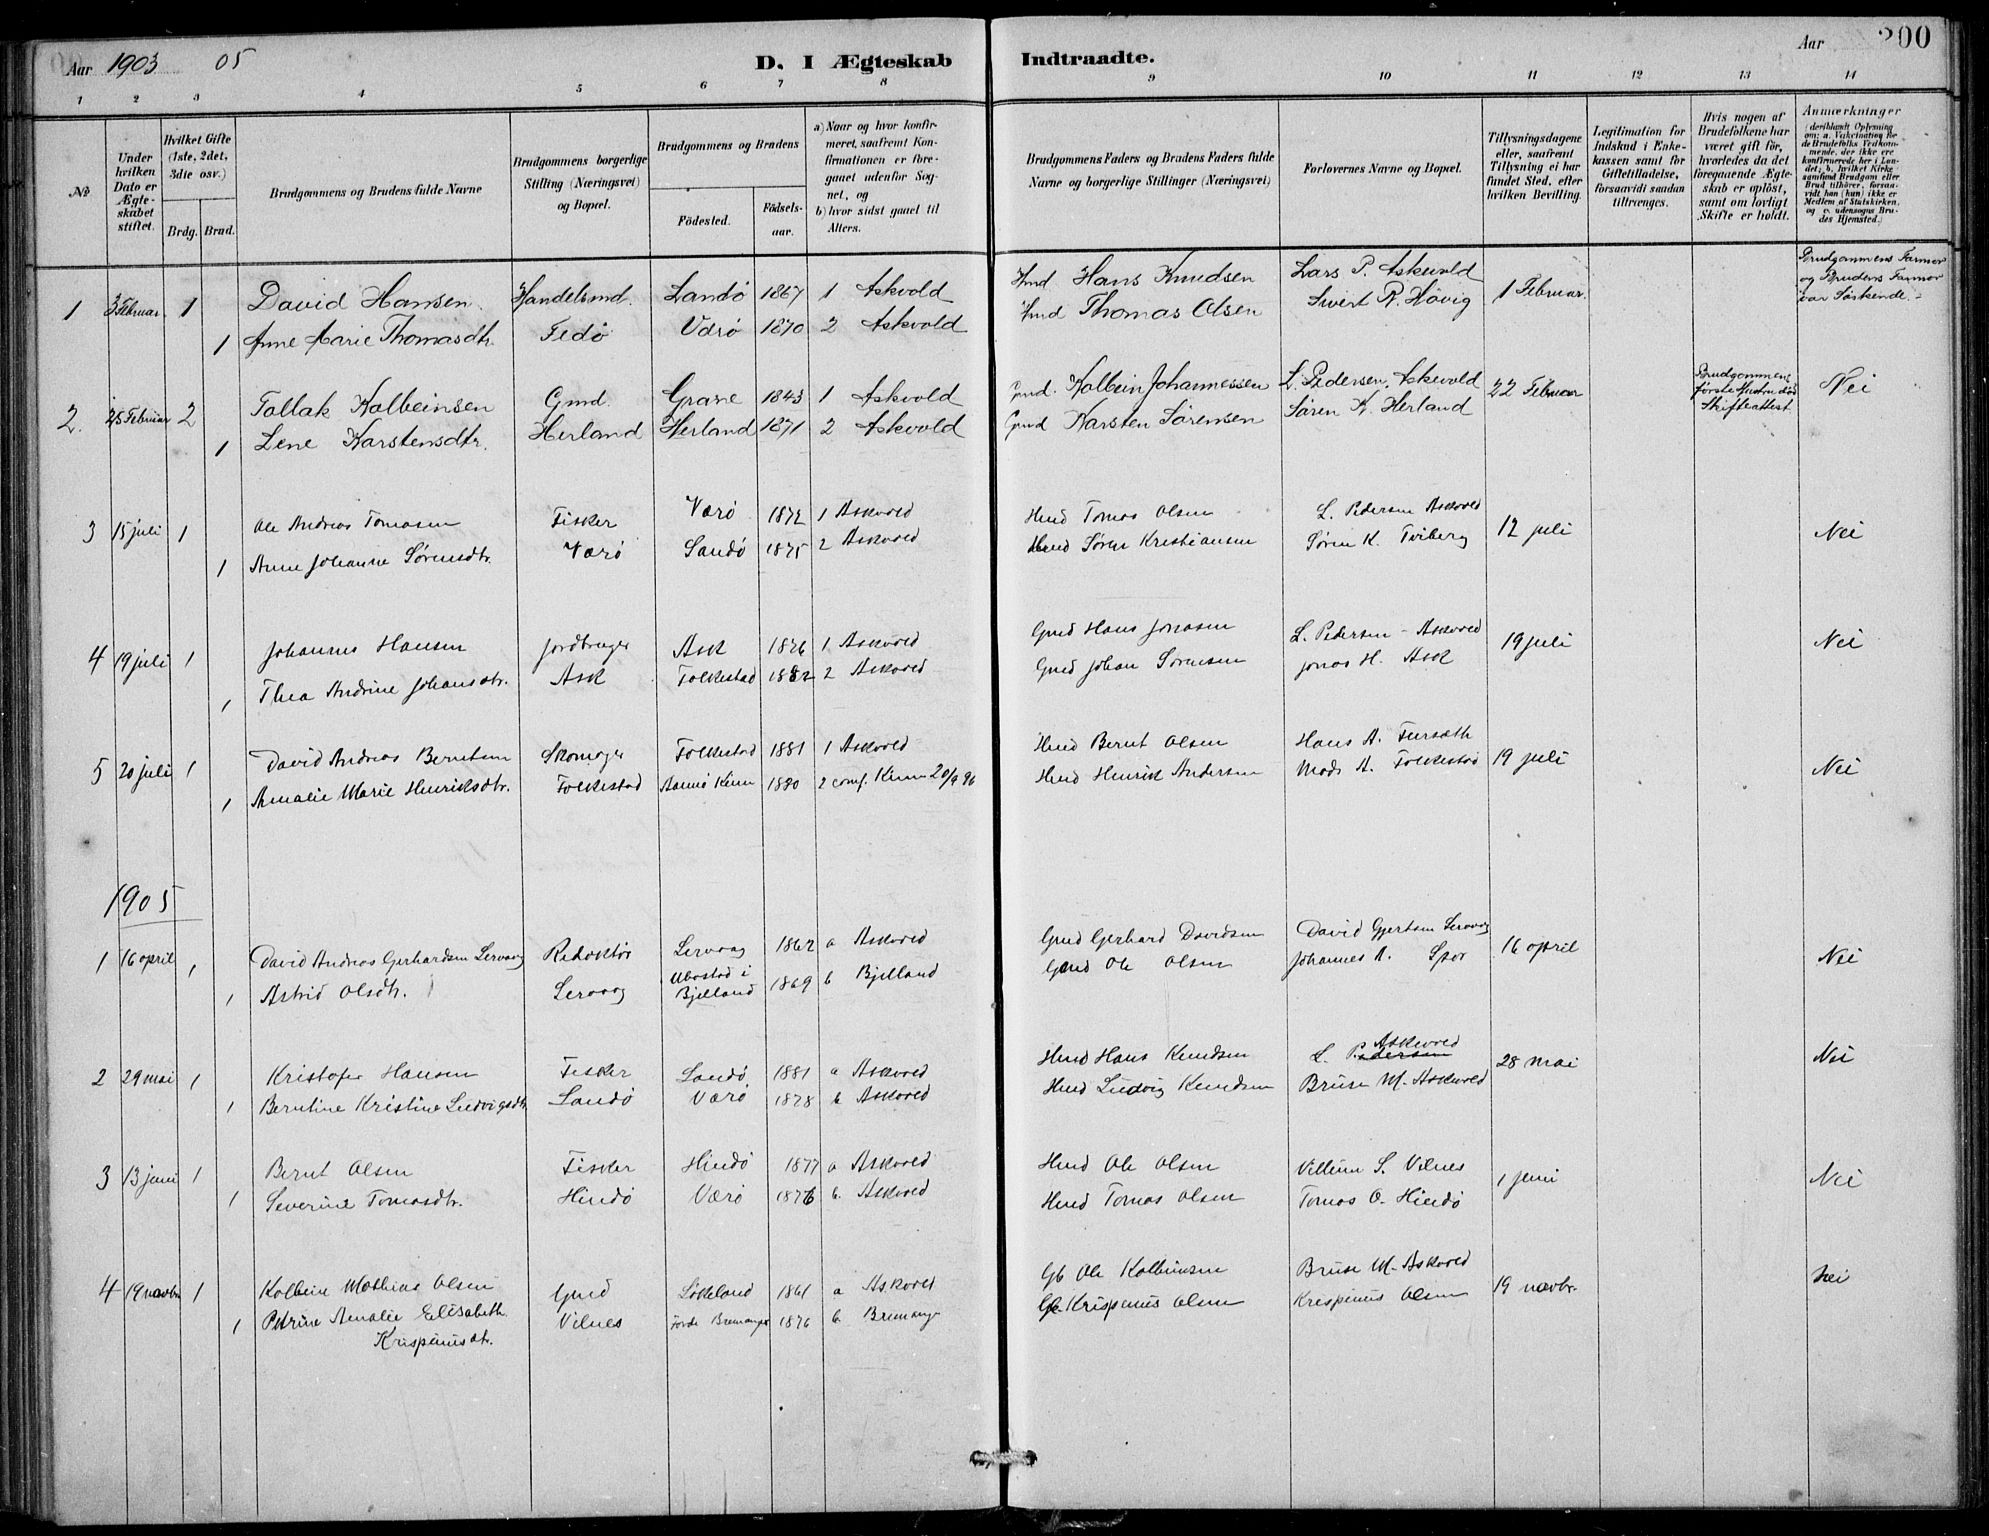 Aar 1903 05
D. I Ægteskab
Indtraadte.
Aar
200
1 2 3 4 5 6 7 8 9 10 11 12 13 14
No
Under hvilken Dato er Ægteskabet stiftet.
Hvilket Gifte (1ste, 2det, 3die osv.)
Brdg. Brud.
Brudgommens og Brudens fulde Navne
Brudgommens borgerlige Stilling (Næringsvei) og Bopæl.
Brudgommens og Brudens
Födested.
Födselsaar.
a) Naar og hvor konfirmeret, saafremt Konfirmationen er foregaaet udenfor Sognet, og
b) hvor sidst gaaet til Alters.
Brudgommens Faders og Brudens Faders fulde Navne og borgerlige Stillinger (Næringsvei)
Forlovernes Navne og Bopæl.
Tillysningsdagene eller, saafremt Tillysning ei har fundet Sted, efter hvilken Bevilling.
Legitimation for Indskud i Enkekassen samt for Giftetilladelse, forsaavidt saadan tiltrænges.
Hvis nogen af Brudefolkene har været gift för, hvorledes da det foregaaende Ægteskab er oplöst, samt om lovligt Skifte er holdt.
Anmærkninger
(deriblandt Oplysning om: a. Vakcination for de Brudefolks Vedkommende, der ikke ere konfirmerede her i Landet; b. hvilket Kirkesamfund Brudgom eller Brud tilhörer, forsaavidt han (hun) ikke er Medlem af Statskirken, og c. udensogns Brudes Hjemsted.)
1 3 Februar 1 David Hansen Handelsmd. Landö 1867 1 Askvold Hmd Hans Knudsen Lars P. Askvold 1 Februar. Brudgommens Farmor og Brudens Farmor var Söskende.
1 Anne Marie Thomasdtr. Fedö Værö 1870 2 Askvold Hmd Thomas Olsen Sivert R. Høvig
2. 25 Februar 2 Tollak Kolbeinsen Gmd. Grane 1843 1 Askvold Gmd. Kolbein Johannessen L. Pedersen, Askvold 22 Februar Brudgommens förste Hustru död Skifteattest. Nei
1 Lene Karstensdtr. Herland Herland 1871 2 Askvold Gmd Karsten Sörensen Sören K. Herland
3 15 juli 1 Ole Andreas Tomasen Fisker Værö 1872 1 Askvold Hmd Tomas Olsen L. Pedersen Askvold 12 juli Nei
1 Anne Johanne Sørensdtr. Værö Sandö 1875 2 Askvold Hmd Sören Kristiansen Søren K. Tviberg
4 19 juli 1 Johannes Hansen Jordbruger Ask 1876 1 Askvold Gmd Hans Jonasen L. Pedersen - Askvold 19 juli Nei
1 Thea Andrine Johansdtr. Ask Folkestad 1882 2 Askvold Gmd Johan Sørensen Jonas H. Ask
5 20 juli 1 David Andreas Berntsen Skomager Folkestad 1881 1 Askvold Hmd Bernt Olsen Hans A. Fursæth 19 juli Nei
1 Amalie Marie Henriksdtr. Folkestad Kinn 1880 2 conf. Kinn 20/9 96 Hmd Henrik Andersen Mads A. Folkestad
1905
1 16 april 1 David Andreas Gerhardsen Lervaag Redaktör Lervaag 1862 a Askvold Gmd Gerhard Davidsen David Gjertsen Lervaag 16 april Nei
1 Astrid Olsdtr. Lervaag Ubostad i Bjelland 1869 b Bjelland Gmd Ole Olsen Johannes A. Spor
2 29 mai 1 Kristofer Hansen Fisker Landö 1881 a Askvold Hmd Hans Knudsen L. Pedersen Askvold 28 mai Nei
1 Berntine Kristine Ludvigsdtr Landö Værö 1878 b Askvold Hmd Ludvig Knudsen Bruse M. Askvold
3 13 juni 1 Bernt Olsen Fisker Hindö 1877 a Askvold Hmd Ole Olsen Villum S. Vilnes 1 juni Nei
1 Severine Tomasdtr. Hindö Værö 1876 b. Askvold Hmd Tomas Olsen Tomas O. Hindö
4 19 novbr 1 Kolbein Mathias Olsen Gmd Løkeland 1861 a Askvold Gb Ole Kolbeinsen Bruse M. Askvold 19 novbr. Nei
1 Petrine Amalie Elisabeth Krispinusdtr. Vilnes Förde Bremanger 1876 b. Bremanger Gb Krispinus Olsen Krespinus Olsen